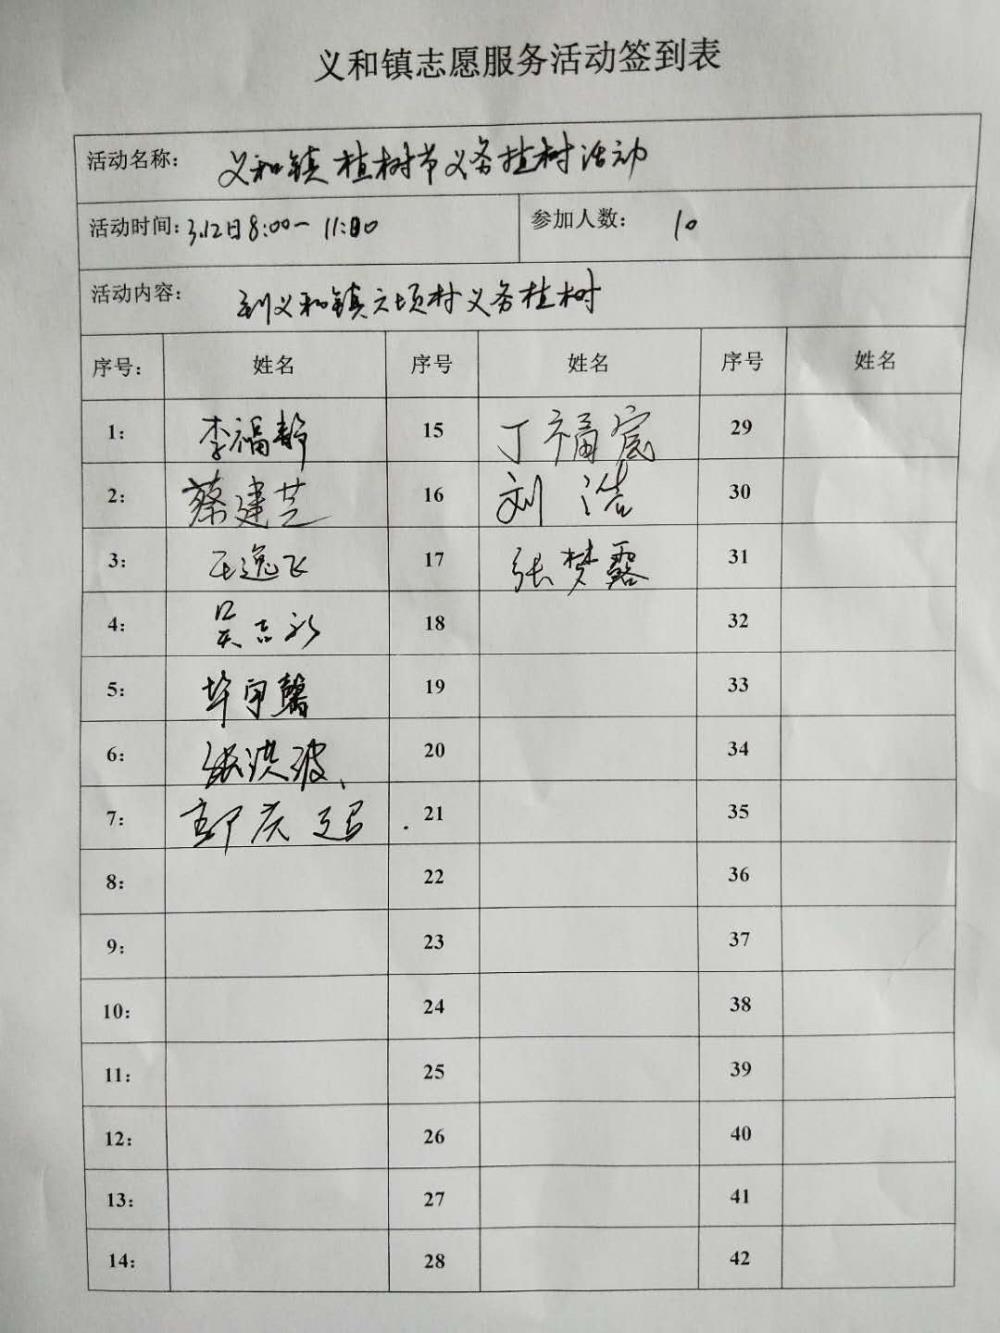 义和镇志愿服务活动签到表
活动名称: 义和镇植树节义务植树活动
活动时间: 3.12日8:00一11:00 参加人数: 10
活动内容: 到义和镇六顷村义务植树
序号: 姓名 序号 姓名 序号 姓名
1: 李福静 15 丁福宸 29
2: 蔡建芝 16 刘浩 30
3: 王逸飞 17 张梦露 31
4: 吴吉永 18 32
5: 毕宇馨 19 33
6: 张洪波、 20 34
7: 21 35
8: 22 36
9: 23 37
10: 24 38
11: 25 39
12: 26 40
13: 27 41
14: 28 42